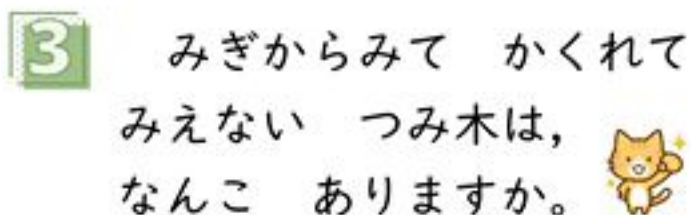 3 みぎからみて かくれて
みえない つみ木は,
なんこ ありますか。